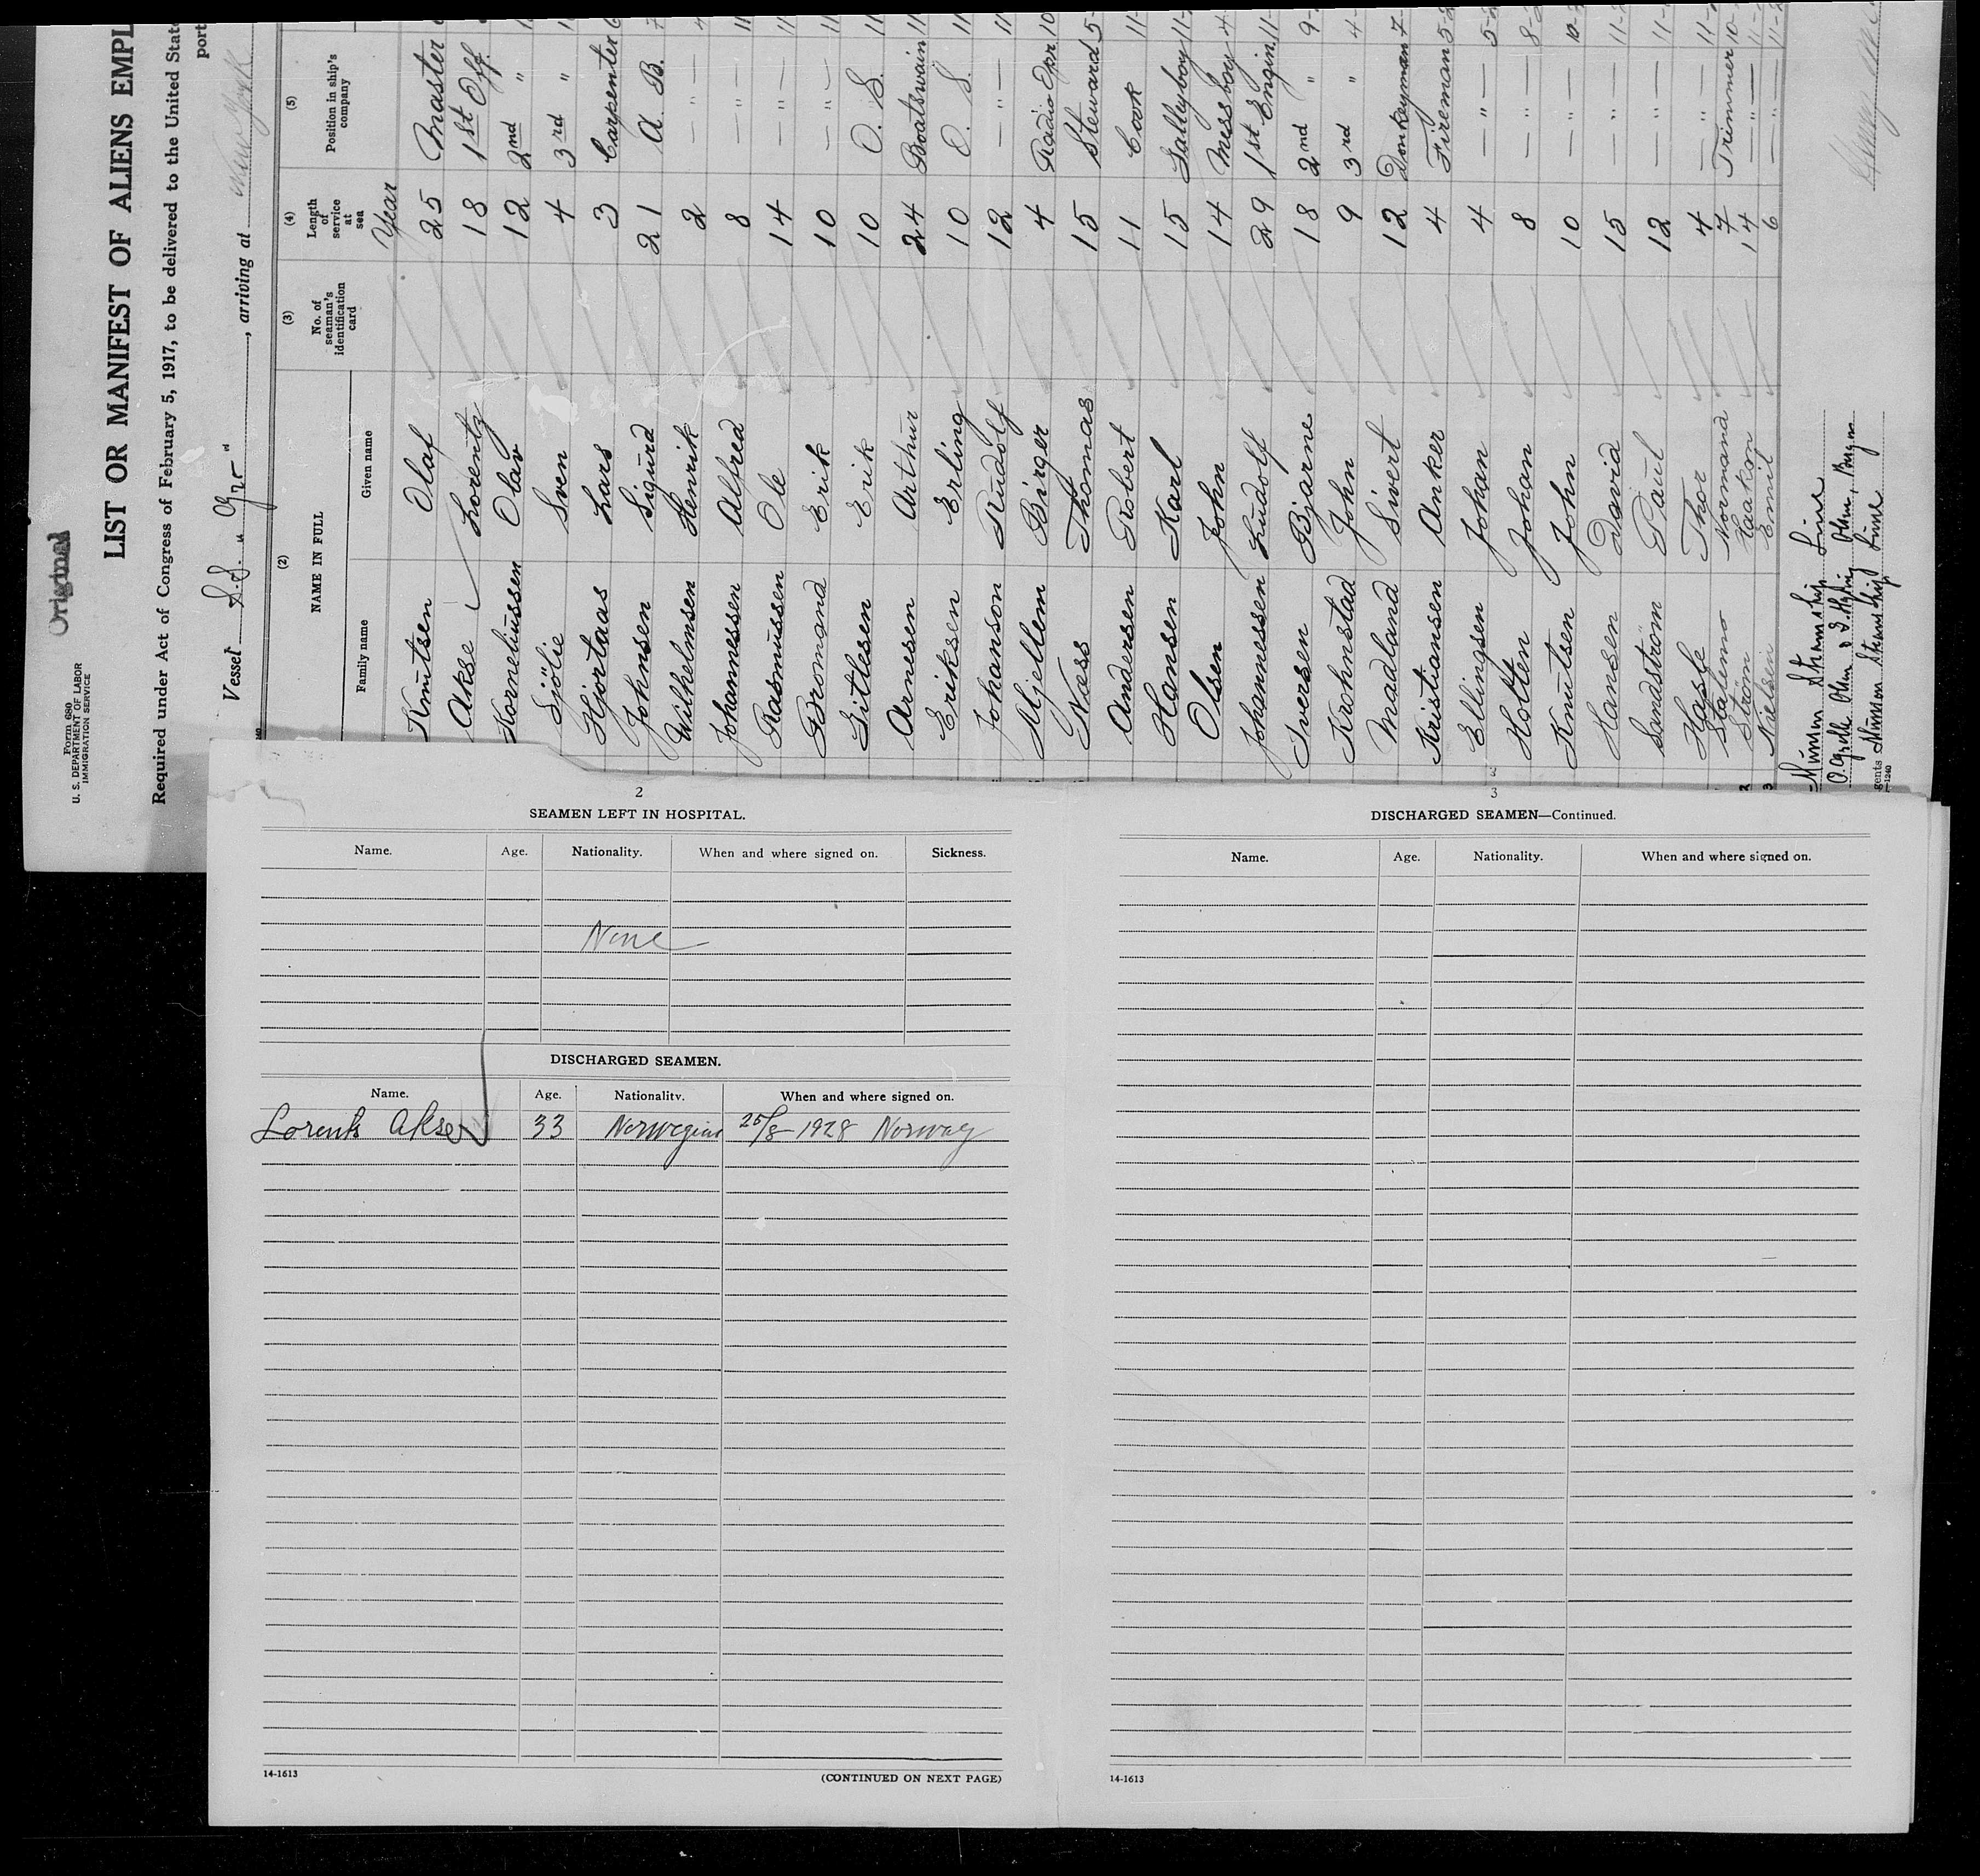 Original
Form 680
U. S. DEPARTMENT OF LABOR
IMMIGRATION SERVICE
LIST OR MANIFEST OF ALIENS EMPL
Required under Act of Congress of February 5, 1917, to be delivered to the United State
port
Vessel S.S. "Gro", arriving at New York
(2) (3) (4) (5)
NAME IN FULL
Family name Given name No. of seaman's identification card Length of service at sea Position in ship's company
Year
Knutsen Olaf 25 Master
Akse Lorentz 18 1st Off
Korneliussen Olav 12 2nd "
Sjölie Sven 4 3rd "
Hjortaas Lars 3 Carpenter
Johnsen Sigurd 21 A. B.
Wilhelmsen Henrik 2 — " —
Johannessen Alfred 8 — " —
Rasmussen Ole 14 — " —
Gromgand Erik 10 — " —
Gitlesen Erik 10 O. S.
Arnesen Arthur 24 Boatswain
Eriksen Erling 10 O. S.
Johanson Rudolf 12 — " —
Mjellem Birger 4 Radio Opr
Næss Thomas 15 Steward
Andersen Robert 11 Cook
Hansen Karl 15 Gallyboy
Olsen John 14 Messboy
Johannessen Ludolf 29 1st Engin.
Iversen Bjarne 18 2nd "
Krohnstad John 9 3rd "
Madland Sivert 12 Donkeyman
Kristiansen Anker 4 Fireman
Ellingsen Johan 4 — " —
Holten Johan 8 — " —
Knutsen John 10 — " —
Hansen David 15 — " —
Sandström Paul 12 — " —
Hasle Thor 4 — " —
Stalemo Normand 7 Trimmer
Ström Haakon 14 — " —
Nielsen Emil 6 — " —
Munson Steamship Line
Munson Steamship Line
2
SEAMEN LEFT IN HOSPITAL.
Name. Age. Nationality. When and where signed on. Sickness.
None
DISCHARGED SEAMEN.
Name. Age. Nationality. When and where signed on.
Lorents Akse 33 Norwegian 25/8-1928 Norway
14-1613 (CONTINUED ON NEXT PAGE)
3
DISCHARGED SEAMEN—Continued.
Name. Age. Nationality. When and where signed on.
14-1613